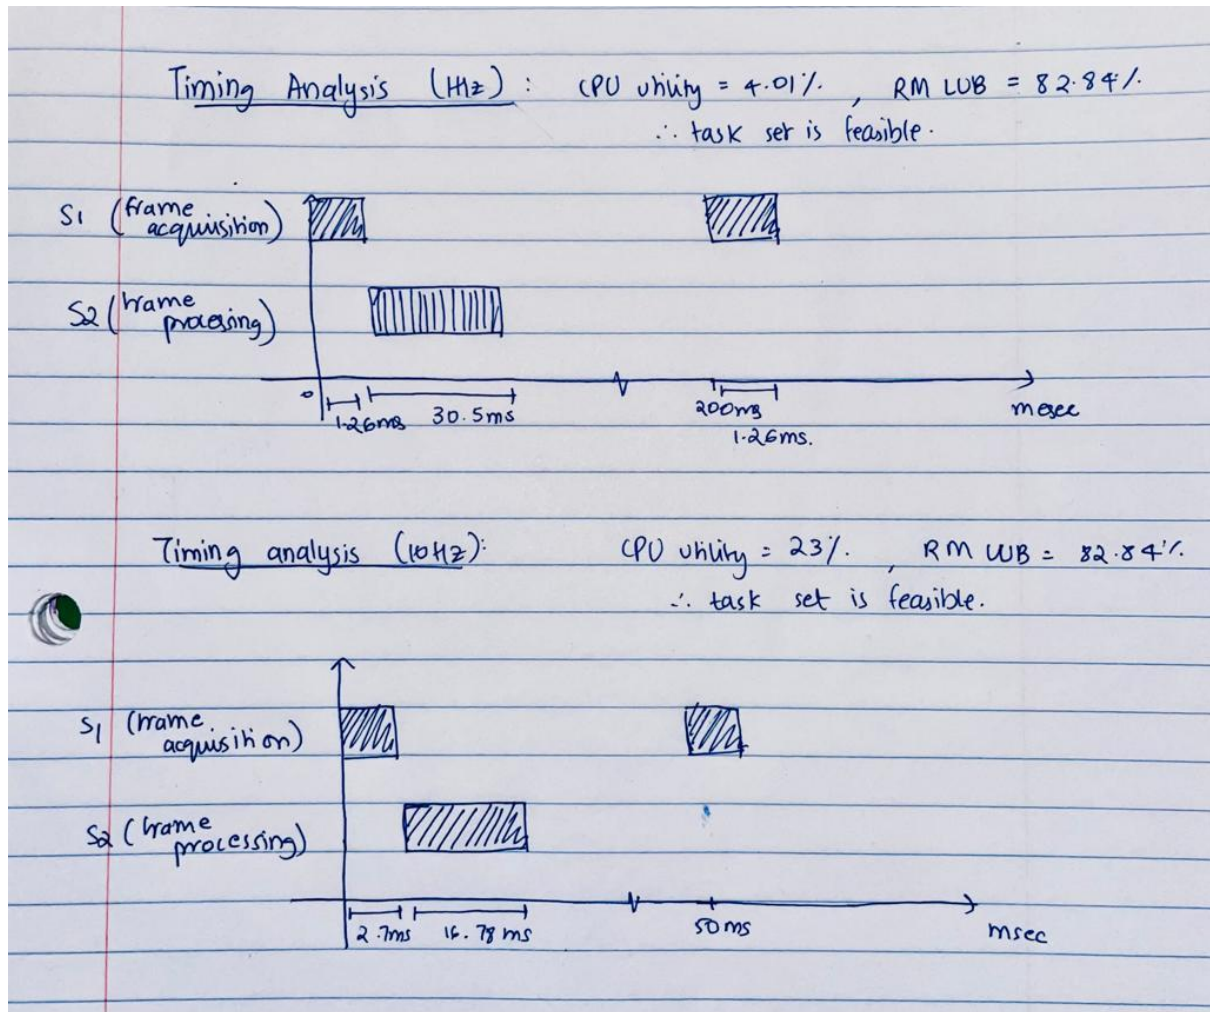 Timing Analysis (1Hz) : CPU utility = 4.01%. , RM LUB = 82.84%.
∴ task set is feasible.
S1 (frame
acquisition)
S2 (frame
processing)
0
1.26ms 30.5ms 200ms msec
1.26ms.
Timing analysis (10Hz): CPU utility = 23%. , RM LUB = 82.84%.
∴ task set is feasible.
S1 (frame
acquisition)
S2 (frame
processing)
2.7ms 16.78 ms 50ms msec